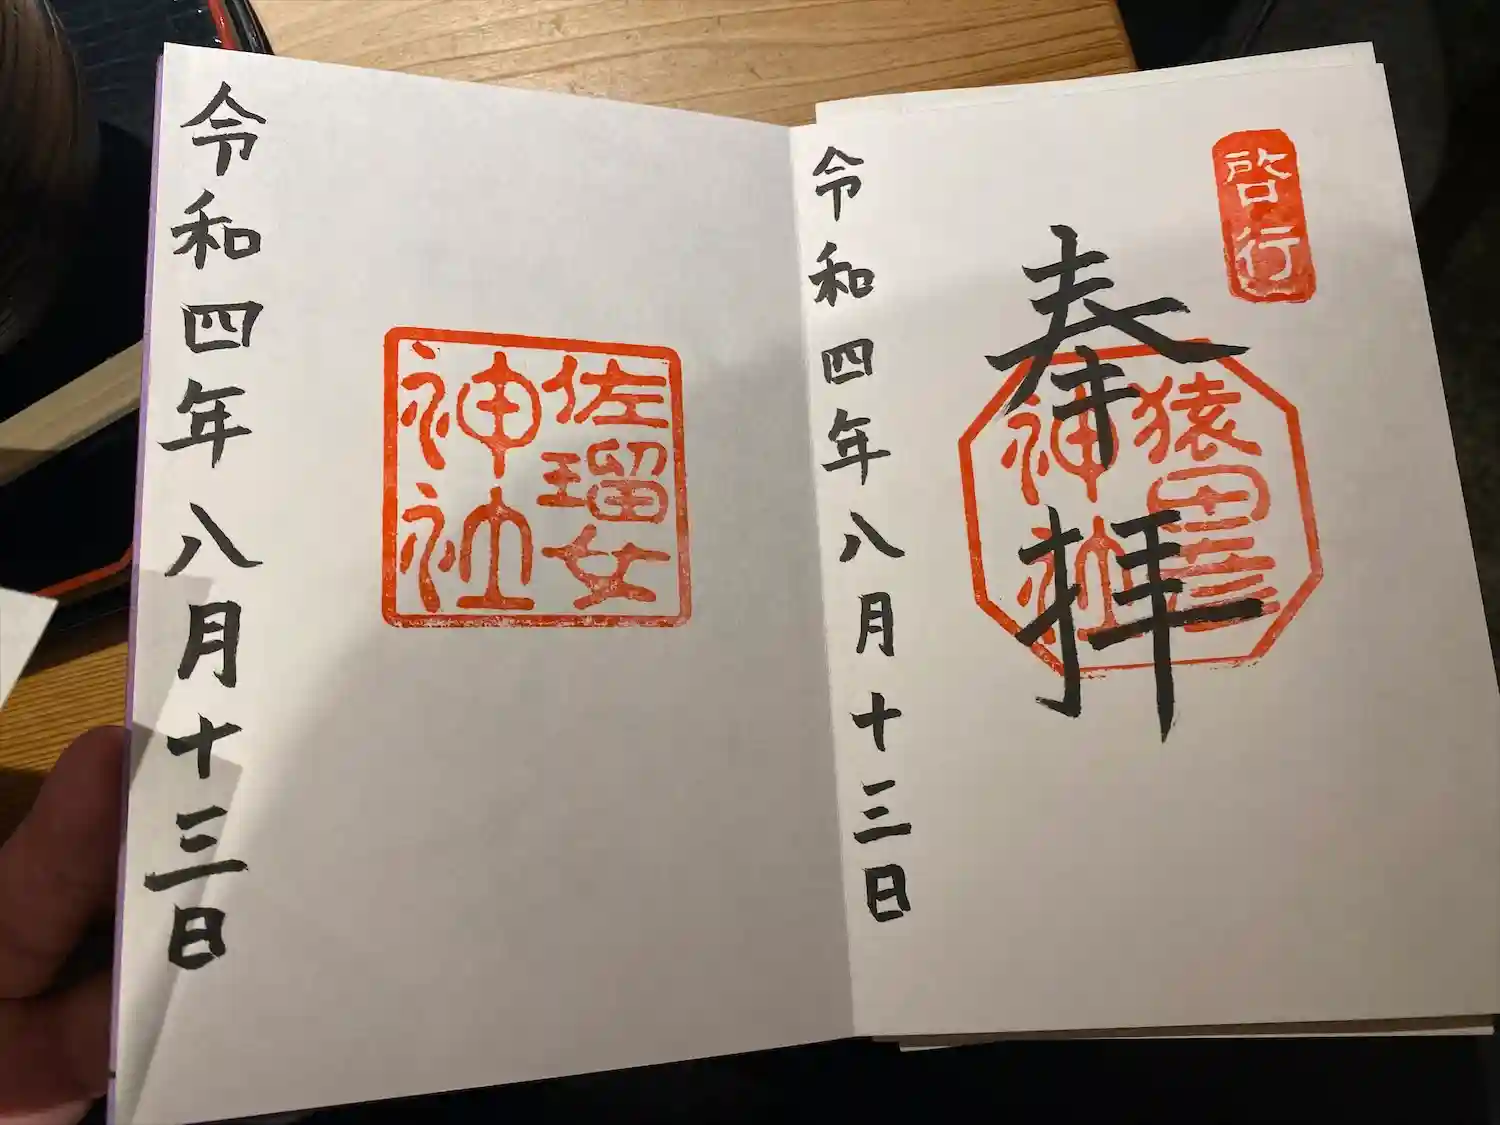 啓行
奉拝
猿田彦
神社
令和四年八月十三日
佐瑠女
神社
令和四年八月十三日